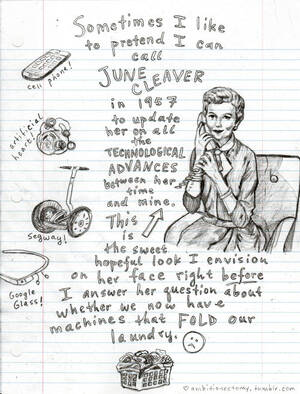 Sometimes I like
to pretend I can
call
JUNE CLEAVER
in 1957
to update
her on all
the
TECHNOLOGICAL
ADVANCES
between her
time
and mine.
This
is
the sweet
hopeful look I envision
on her face right before
I answer her question about
whether we now have
machines that FOLD our
laundry.
cell phone!
artificial
heart!
segway!
Google
Glass!
© ambitionectomy.tumblr.com